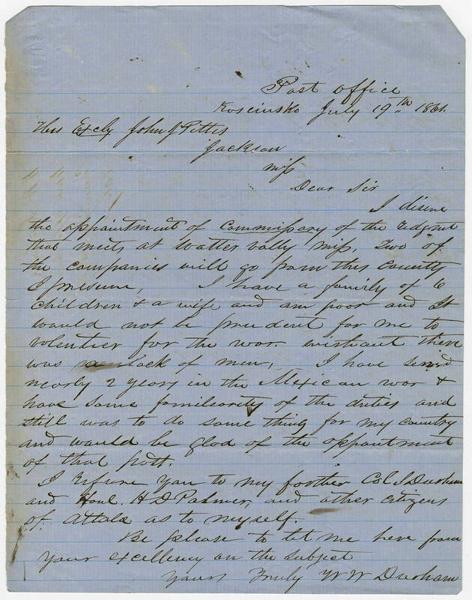 Post Office
Kosciusko July 19th 1861.
His Excly John J Pettus
Jackson
Miss
Dear Sir
I disire
the appointment of Commissary of the Redjmt
that meets at Watter vally Miss, Two of
the companies will go from this County
I presume, I have a family of 6
children & a wife and am poor and it
would not be prudent for me to
volenteer for the war without there
was a lack of men, I have served
nearly 2 years in the Mexican war &
have some familiarity of the duties and
still was to do some thing for my country
and would be glad of the appointment
of that post.
I refure you to my forther Col. J Durham
and Honl. H D Palmer, and other citizens
of Attala as to myself.
Be please to let me here from
your excellency on the subject
Yours Truly W W Durham